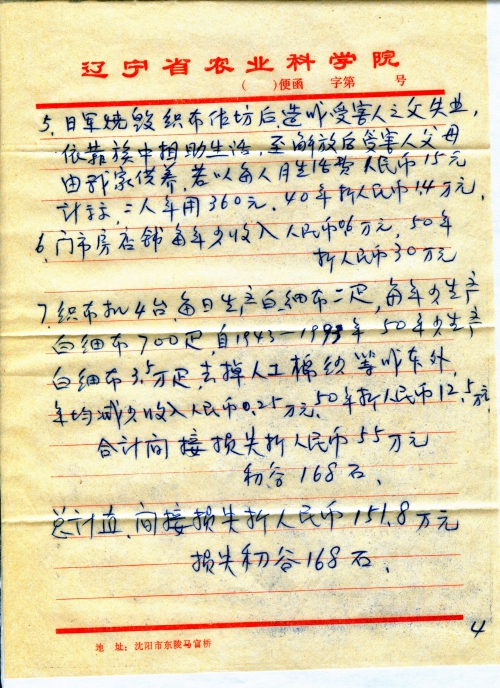 辽宁省农业科学院
( )便函 字第 号
5、日军烧毁织布作坊后,造成受害人之父失业,
依靠族中相助生活,至解放后受害人父母
由我家供养,若以每人月生活费人民币15元
计算,二人年用360元,40年折人民币1.4万元,
6、门市房店铺每年少收入人民币0.6万元,50年
折人民币30万元
7、织布机4台,每日生产白细布二疋,每年少生产
白细布700疋,自1943—1993年50年少生产
白细布3.5万疋,去掉人工棉纱等成本外,
年均减少收入人民币0.25万元,50年折人民币12.5万元
合计间接损失折人民币55万元
初谷168石、
总计直、间接损失折人民币151.8万元
损失初谷168石、
4
地 址:沈阳市东陵马官桥